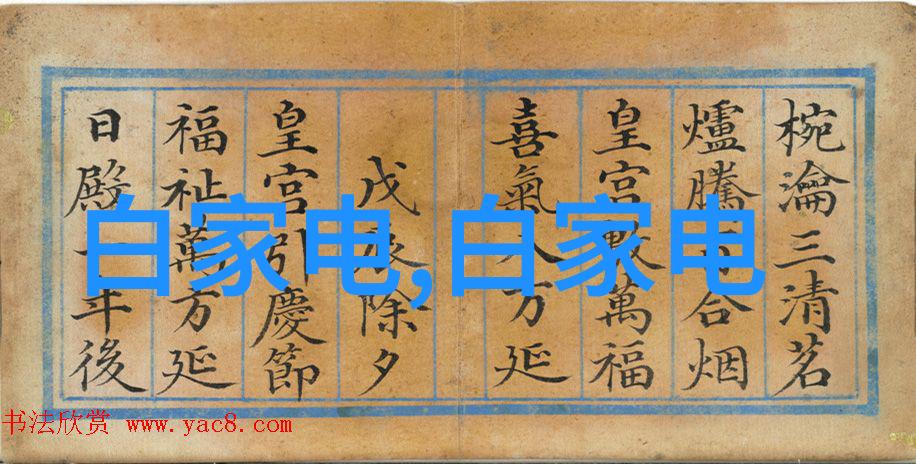 椀瀹三清茗
爐騰合烟
皇宮敷萬福
喜氣八方延
戊辰除夕
皇宮引慶節
福祉萬方延
日殿一年後
白家电,白家电
书法欣赏 www.yac8.com